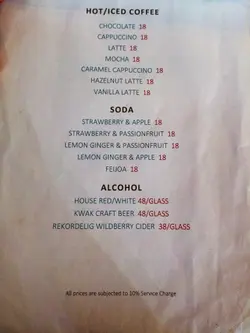 HOT/ICED COFFEE
CHOCOLATE 18
CAPPUCCINO 18
LATTE 18
MOCHA 18
CARAMEL CAPPUCCINO 18
HAZELNUT LATTE 18
VANILLA LATTE 18
SODA
STRAWBERRY & APPLE 18
STRAWBERRY & PASSIONFRUIT 18
LEMON GINGER & PASSIONFRUIT 18
LEMON GINGER & APPLE 18
FEIJOA 18
ALCOHOL
HOUSE RED/WHITE 48/GLASS
KWAK CRAFT BEER 48/GLASS
REKORDELIG WILDBERRY CIDER 38/GLASS
All prices are subjected to 10% Service Charge